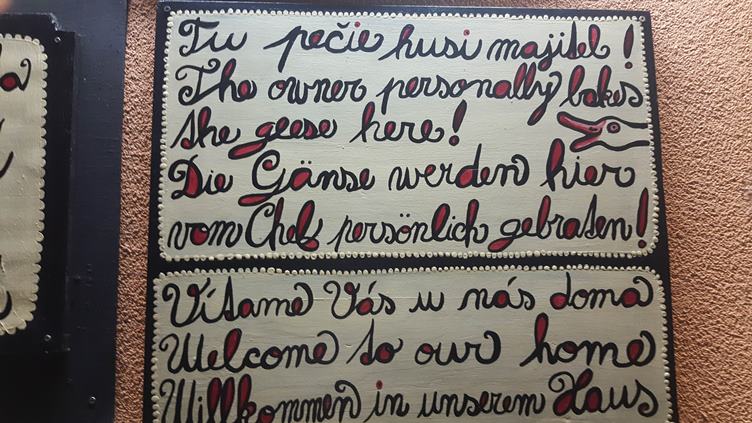 Tu pečie husi majitel!
The owner personally bakes
the geese here!
Die Gänse werden hier
vom Chef persönlich gebraten!
Vítame Vás u nás doma
Welcome to our home
Willkommen in unserem Haus